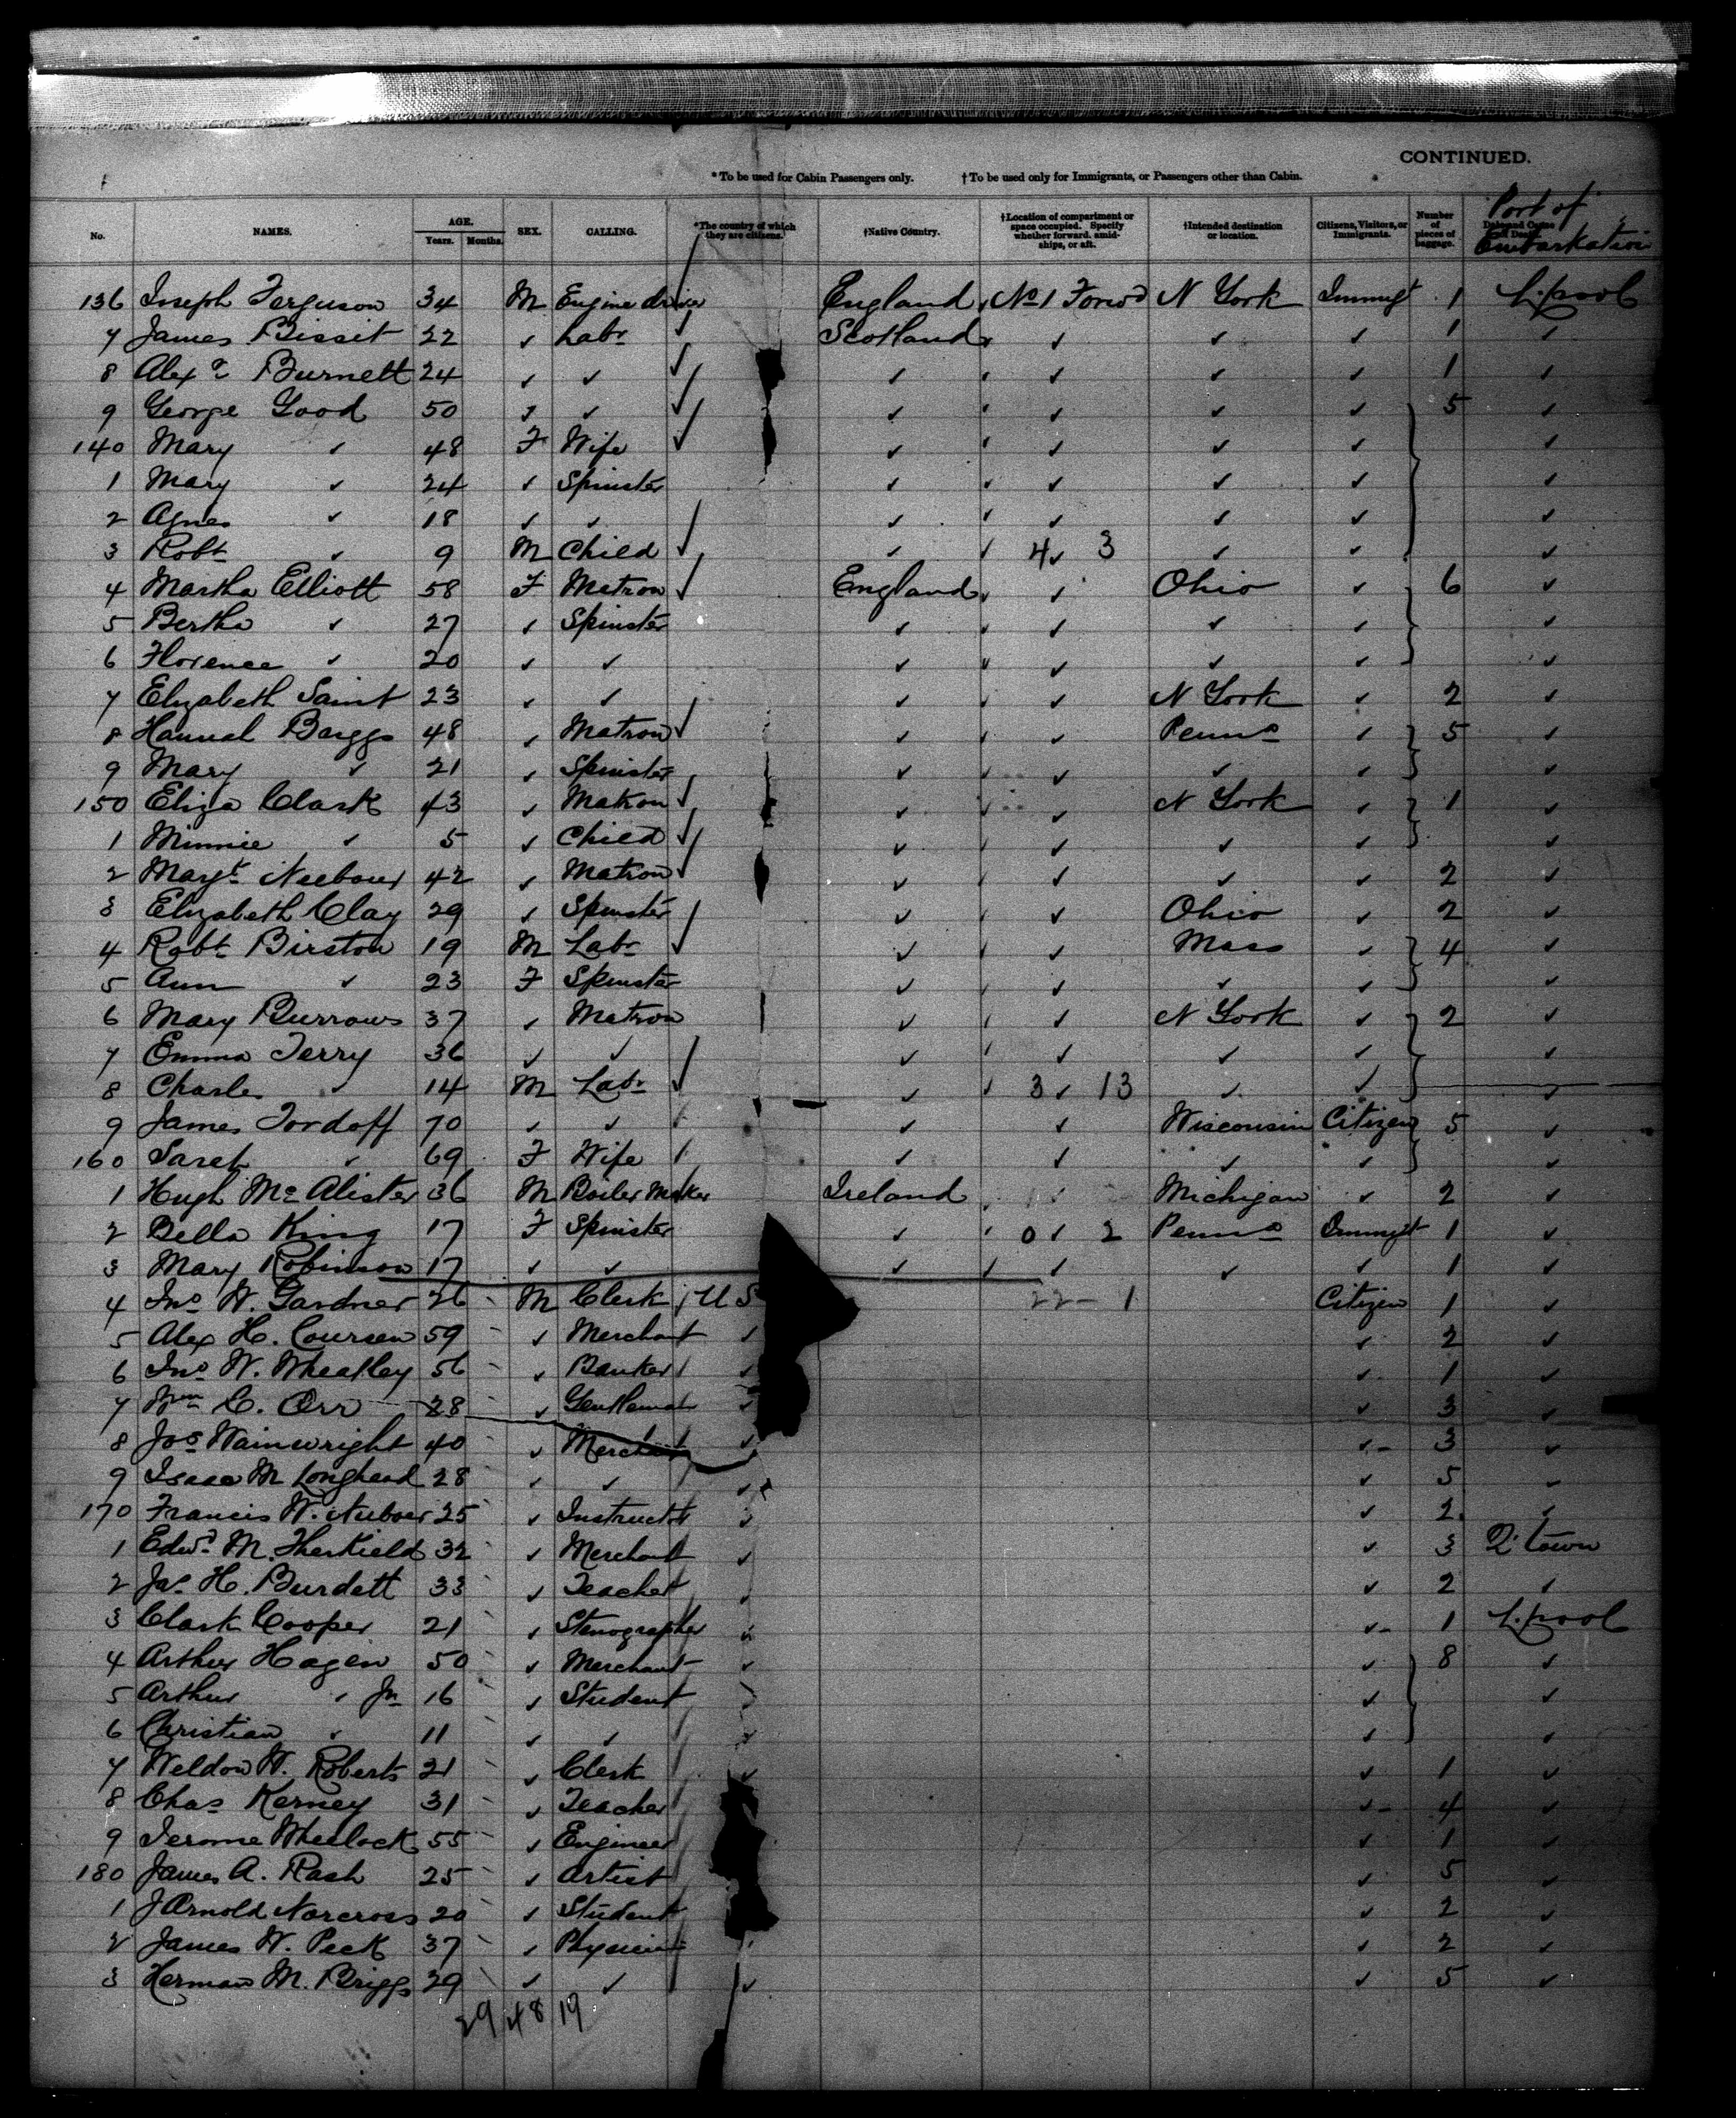 CONTINUED.
* To be used for Cabin Passengers only. † To be used only for Immigrants, or Passengers other than Cabin.
No. NAMES. AGE. Years. Months. SEX. CALLING. *The country of which they are citizens. †Native Country. †Location of compartment or space occupied. Specify whether forward, amidships, or aft. †Intended destination or location. Citizens, Visitors, or Immigrants. Number of pieces of baggage. Port of Embarkation
136 Joseph Ferguson 34 M Engine driver England No 1 Forwd N York Immigt 1 L.pool
7 James Bissit 22 ✓ Labr Scotland ✓ ✓ ✓ 1 ✓
8 Alexr Burnett 24 ✓ ✓ ✓ ✓ ✓ ✓ 1 ✓
9 George Good 50 ✓ ✓ ✓ ✓ ✓ ✓ 5 ✓
140 Mary ✓ 48 F Wife ✓ ✓ ✓ ✓ ✓
1 Mary ✓ 24 ✓ Spinster ✓ ✓ ✓ ✓ ✓
2 Agnes ✓ 18 ✓ ✓ ✓ ✓ ✓ ✓ ✓
3 Robt ✓ 9 M Child ✓ 4 ✓ 3 ✓ ✓ ✓
4 Martha Elliott 58 F Matron England ✓ Ohio ✓ 6 ✓
5 Bertha ✓ 27 ✓ Spinster ✓ ✓ ✓ ✓ ✓
6 Florence ✓ 20 ✓ ✓ ✓ ✓ ✓ ✓ ✓
7 Elizabeth Saint 23 ✓ ✓ ✓ ✓ N York ✓ 2 ✓
8 Hannah Baggs 48 ✓ Matron ✓ ✓ Penna ✓ 5 ✓
9 Mary ✓ 21 ✓ Spinster ✓ ✓ ✓ ✓ ✓
150 Eliza Clark 43 ✓ Matron ✓ ✓ N York ✓ 1 ✓
1 Minnie ✓ 5 ✓ Child ✓ ✓ ✓ ✓ ✓
2 Margt 42 ✓ Matron ✓ ✓ ✓ ✓ 2 ✓
3 Elizabeth Clay 29 ✓ Spinster ✓ ✓ Ohio ✓ 2 ✓
4 Robt Birston 19 M Labr ✓ ✓ Mass ✓ 4 ✓
5 Ann ✓ 23 F Spinster ✓ ✓ ✓ ✓ ✓
6 Mary Burrows 37 ✓ Matron ✓ ✓ N York ✓ 2 ✓
7 Emma Terry 36 ✓ ✓ ✓ ✓ ✓ ✓ ✓
8 Charles ✓ 14 M Labr ✓ 3 ✓ 13 ✓ ✓ ✓
9 James Tordoff 70 ✓ ✓ ✓ ✓ Wisconsin Citizen 5 ✓
160 Sarah ✓ 69 F Wife ✓ ✓ ✓ ✓ ✓
1 Hugh McAlister 36 M Boiler Maker Ireland ✓ Michigan ✓ 2 ✓
2 Bella King 17 F Spinster ✓ 0 ✓ 2 Penna Immigt 1 ✓
3 Mary Robinson 17 ✓ ✓ ✓ ✓ ✓ ✓ 1 ✓
4 Jno W. Gardner 26 M Clerk U S 22 - 1 Citizen 1 ✓
5 Alex H. Coursen 59 ✓ Merchant ✓ ✓ 2 ✓
6 Jno W. Wheatley 56 ✓ Banker ✓ ✓ 1 ✓
7 Wm C. Orr 28 ✓ Gentleman ✓ ✓ 3 ✓
8 Jos Wainwright 40 ✓ Merchant ✓ ✓ 3 ✓
9 Isaac M Longhead 28 ✓ ✓ ✓ ✓ 5 ✓
170 Francis W. 25 ✓ Instructr ✓ ✓ 2 ✓
1 Edwd M. 32 ✓ Merchant ✓ ✓ 3 Q. town
2 Jas H. Burdett 33 ✓ Teacher ✓ ✓ 2 ✓
3 Clark Cooper 21 ✓ Stenographer ✓ ✓ 1 L.pool
4 Arthur Hagen 50 ✓ Merchant ✓ ✓ 8 ✓
5 Arthur ✓ Jn 16 ✓ Student ✓ ✓ ✓
6 Christian ✓ 11 ✓ ✓ ✓ ✓ ✓
7 Weldon W. Roberts 21 ✓ Clerk ✓ ✓ 1 ✓
8 Chas Kerney 31 ✓ Teacher ✓ 4 ✓
9 Jerome Wheelock 55 ✓ Engineer ✓ 1 ✓
180 James A. Rash 25 ✓ Artist ✓ 5 ✓
1 J Arnold Norcross 20 ✓ Student ✓ 2 ✓
2 James W. Peck 37 ✓ Physician ✓ 2 ✓
3 Herman M. Briggs 29 ✓ ✓ ✓ ✓ 5 ✓
29 48 19